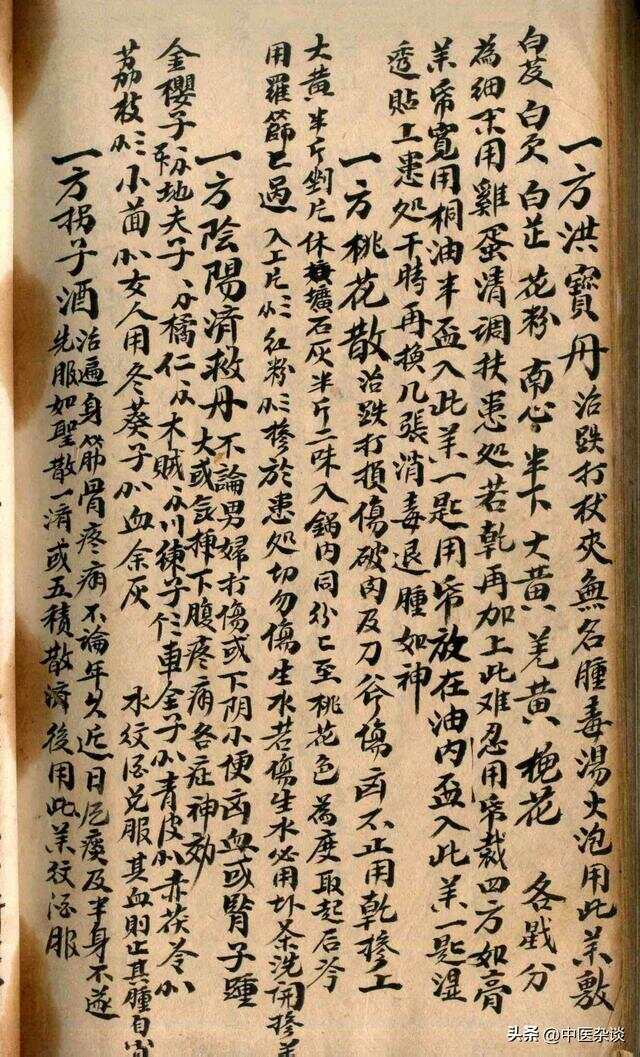 一方洪寳丹治跌打杖夾無名腫毒湯火泡用此羔敷
白芨 白欠 白芷 花粉 南心 半下 大黄 羌黄 梔花 各戥分
為細末用雞蛋清調扶患処若乾再加上此难忍用帋裁四方如膏
羔帋寛用桐油半盃入此羔一匙用帋放在油内盃入此羔一匙湿
透貼上患処干時再換几張消毒退腫如神
一方桃花散治跌打損傷破肉及刀斧傷 不止用乾摻上
大黄半斤剉片 石灰半斤二味入鍋内同炒 至桃花色為度取起后冷
用羅篩 過 入工片 红粉 摻於患処切勿傷生水若傷生水必用 茶洗 摻羔
一方陰陽済救丹不論男婦打傷或下阴小便 血或腎子踵
大或 捙下腹疼痛各症神効
金櫻子 地夫子 橘仁 木贼 川練子 車金子小青皮小赤茯令小
荔枝 小茴小女人用冬葵子小血余灰 水紋酒兑服其血則止其腫自
一方拐子酒治遍身筋骨疼痛不論年久近日 痰及半身不遂
先服如聖散一济或五積散济後用此羔紋酒服
头条 @中医杂谈